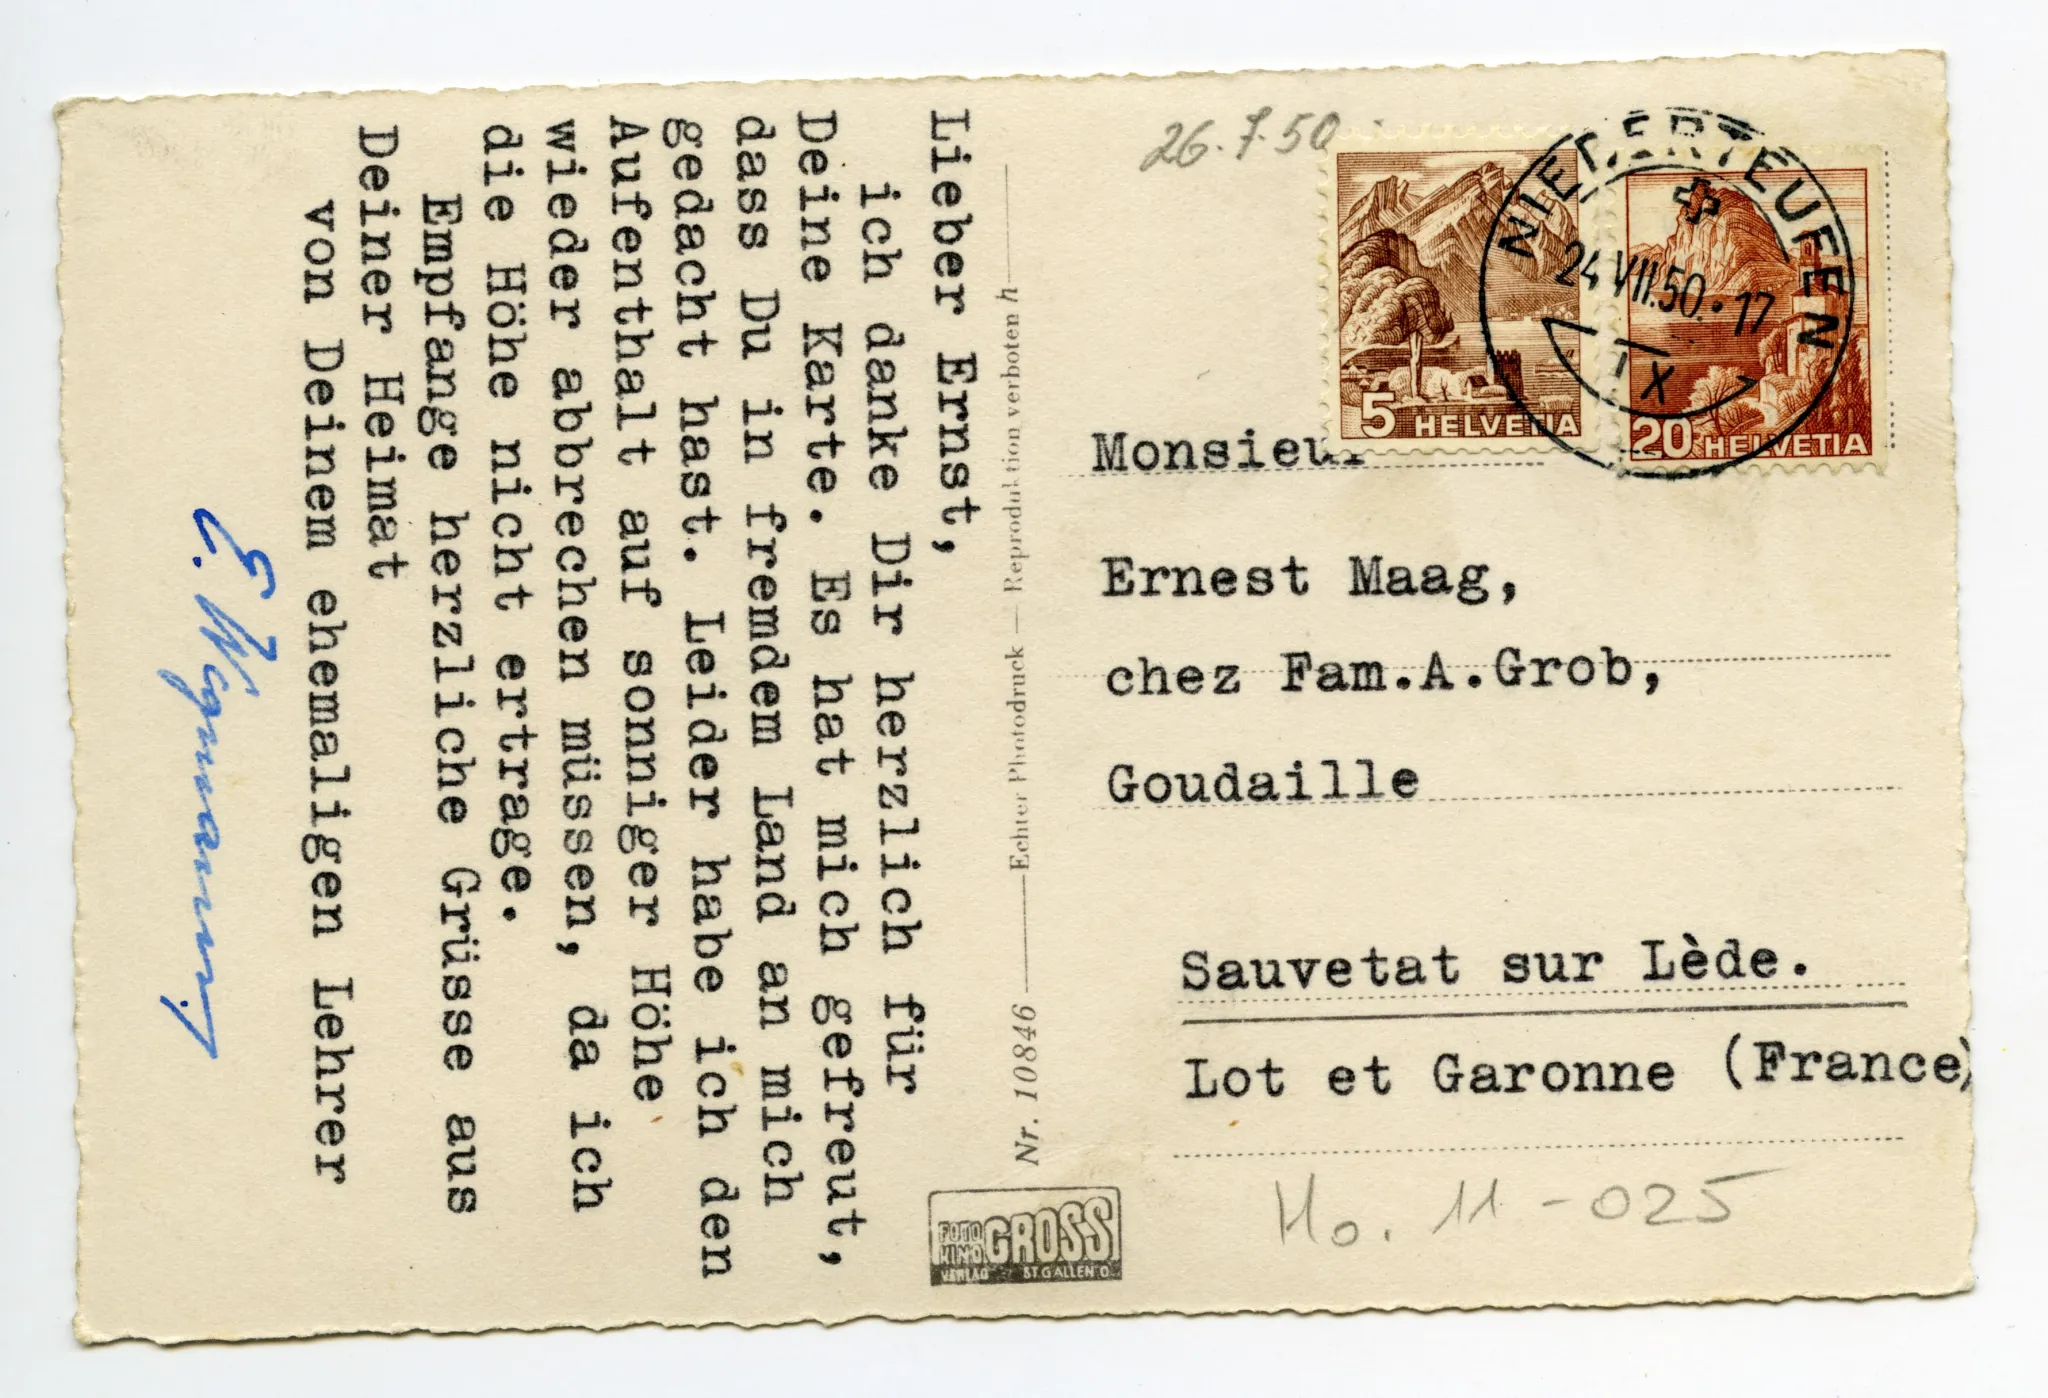 Lieber Ernst,
ich danke Dir herzlich für
Deine Karte. Es hat mich gefreut,
dass Du in fremdem Land an mich
gedacht hast. Leider habe ich den
Aufenthalt auf sonniger Höhe
wieder abbrechen müssen, da ich
die Höhe nicht ertrage.
Empfange herzliche Grüsse aus
Deiner Heimat
von Deinem ehemaligen Lehrer
Nr. 10846 — Echter Photodruck — Reproduktion verboten h
26.7.50
5 HELVETIA
20 HELVETIA
NIEDERTEUFEN
24.VII.50.-17
Monsieur
Ernest Maag,
chez Fam.A.Grob,
Goudaille
Sauvetat sur Lède.
Lot et Garonne (France)
Ho. 11-025
FOTO
KINO
GROSS
VERLAG ST GALLEN O